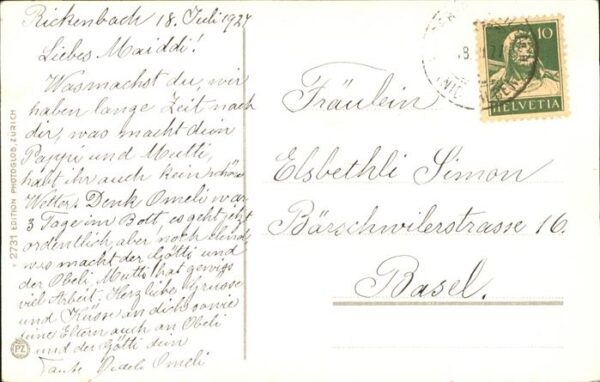 Rickenbach 18. Juli 1927
Liebes Maiddi!
Was machst du, wir
haben lange Zeit nach
dir, was macht dein
Pappi und Mutti,
habt ihr auch kein schön
Wetter. Denk Omeli war
3 Tage im Bott, es geht jetzt
ordentlich aber noch elend,
was macht der Götti und
der Obeli. Mutti hat gewiss
viel Arbeit, Herzliche Grüsse
und Küsse an dich sowie
deine Eltern auch an Obeli
und der Götti dein
Tante Omeli
2731 EDITION PHOTOGLOB, ZÜRICH
PZ
10
HELVETIA
Fräulein
Elsbethli Simon
Bärschwilerstrasse 16.
Basel.